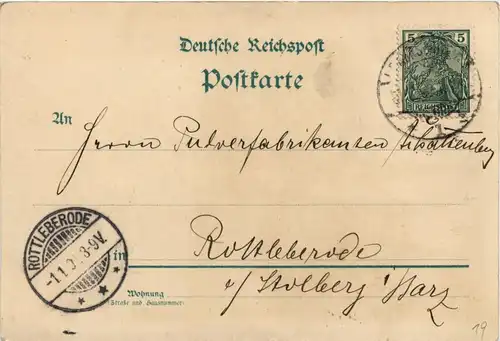 Deutsche Reichspost
Postkarte
5 5
An
Herrn Pulverfabrikanten
ROTTLEBERODE
8-9V.
in
Rottleberode
Wohnung
(Straße und Hausnummer)
a/ Stolberg Harz
19